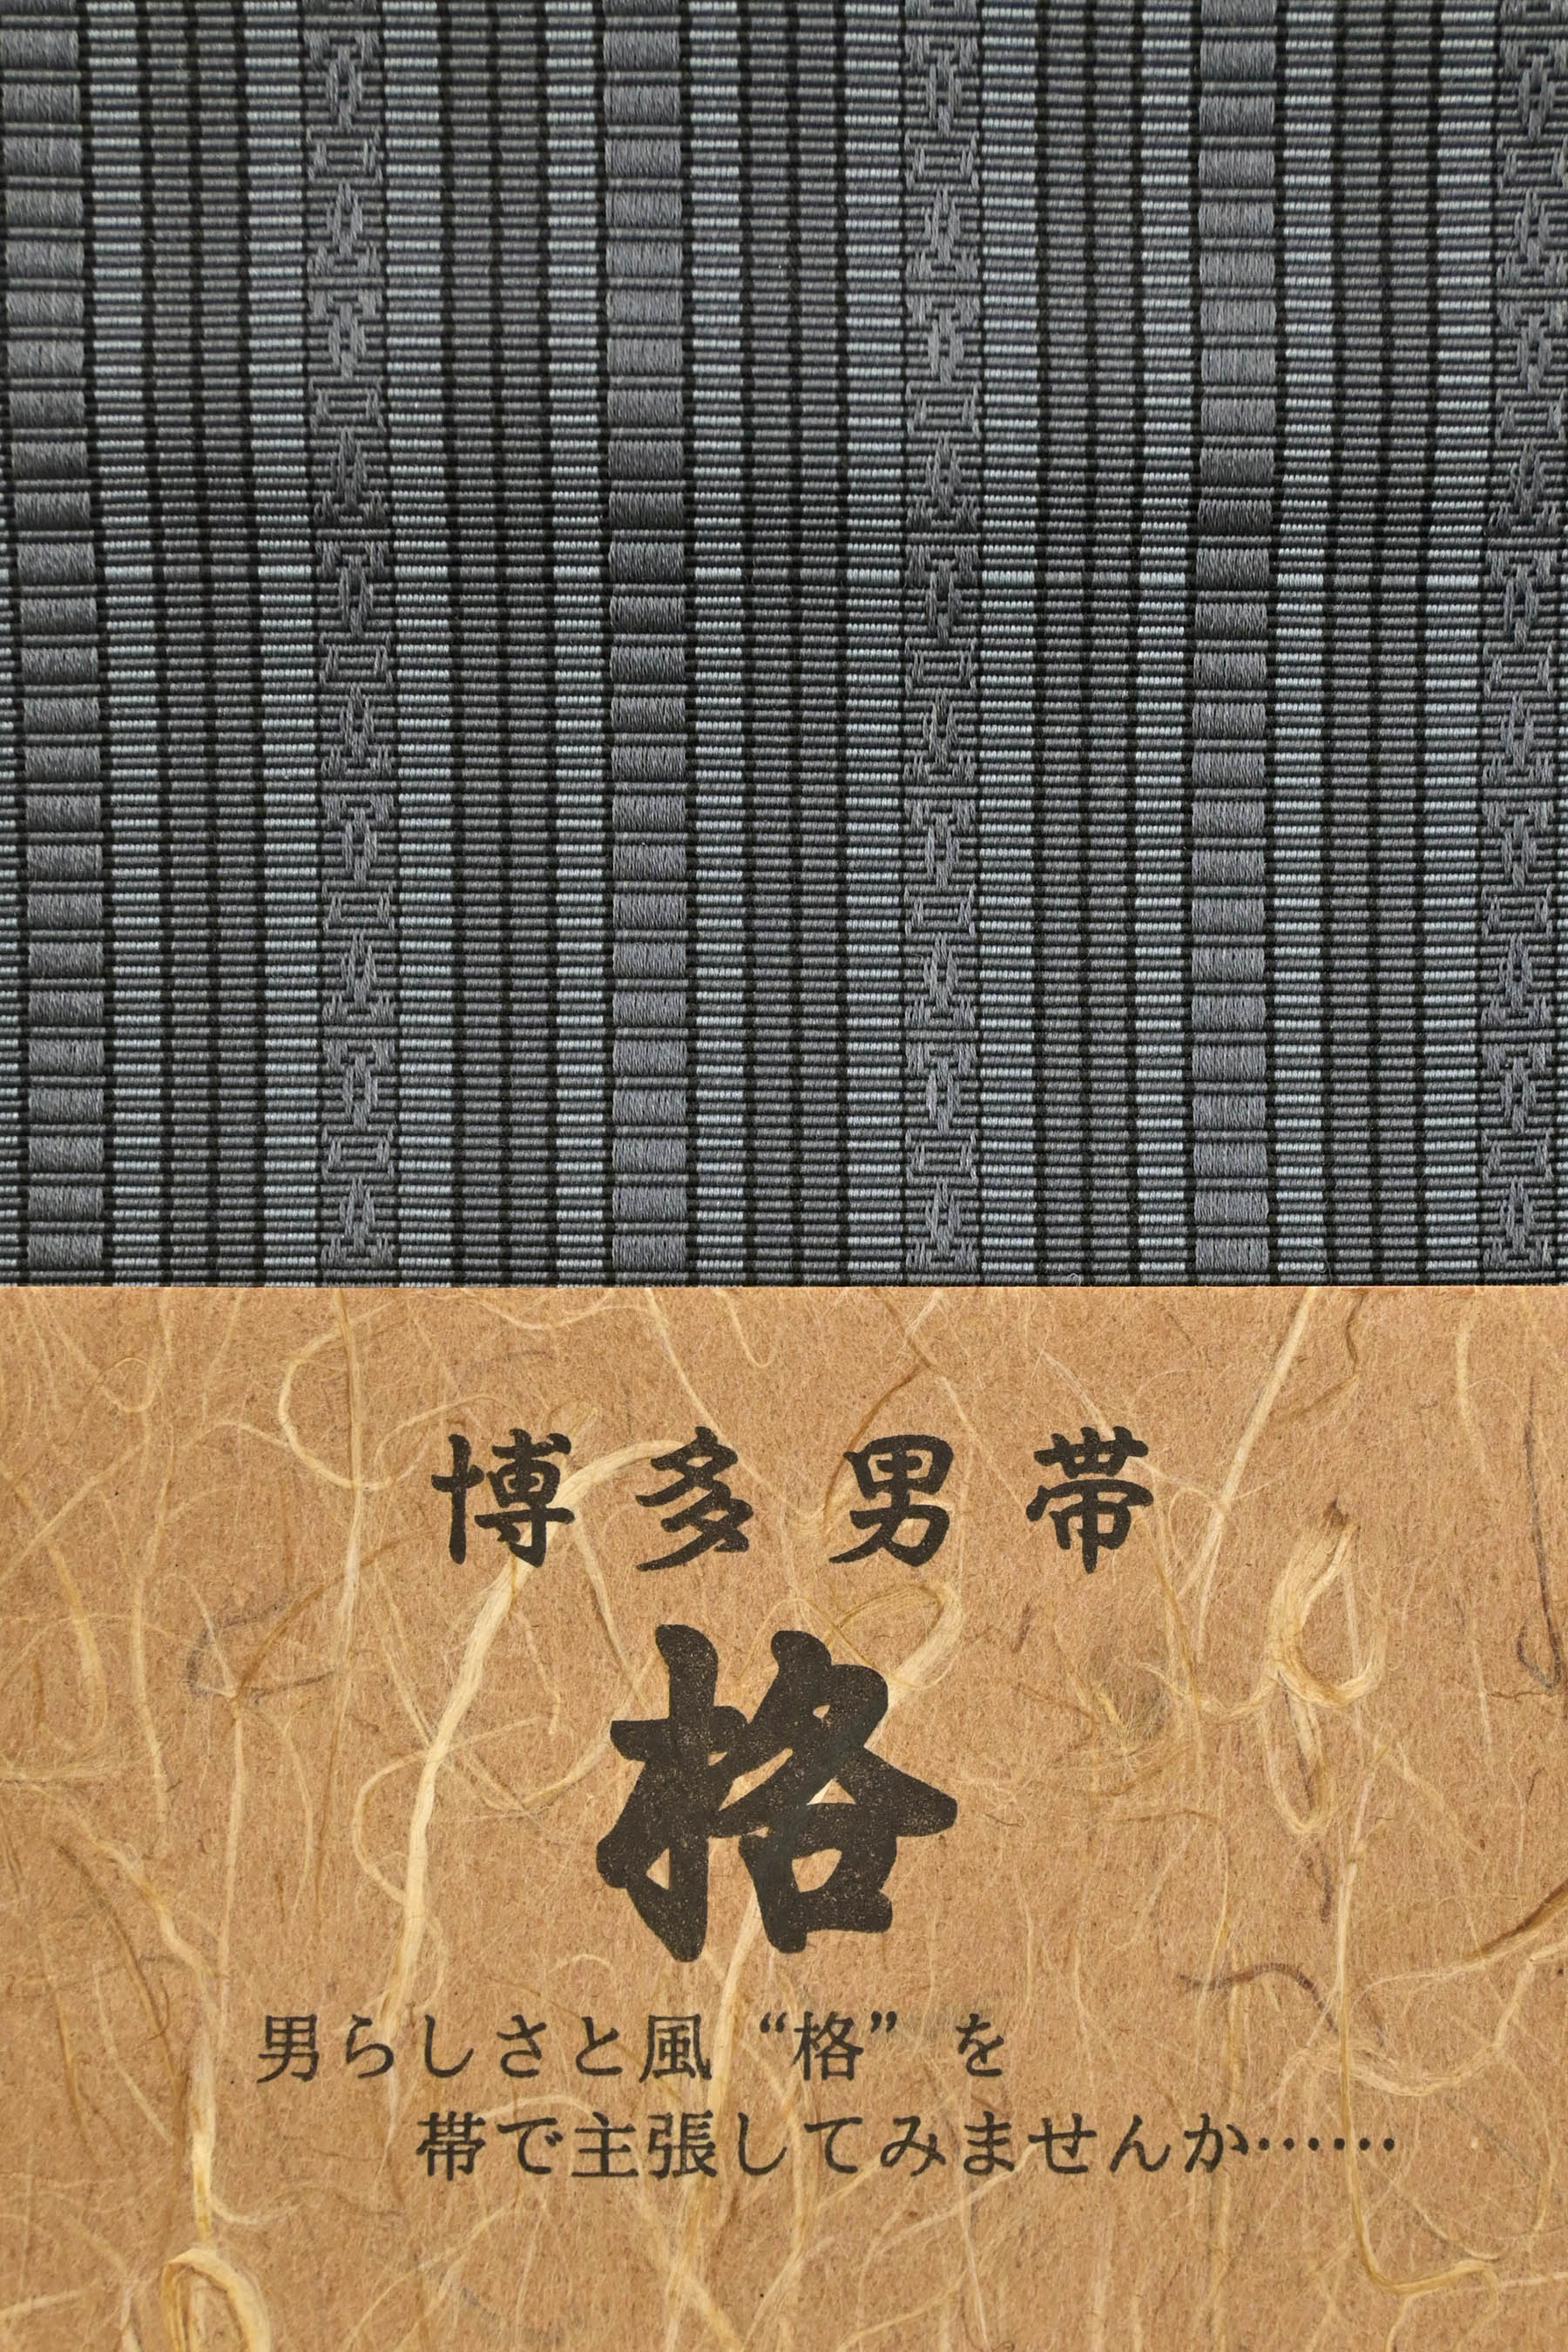 博多男帯
格
男らしさと風“格”を
帯で主張してみませんか……